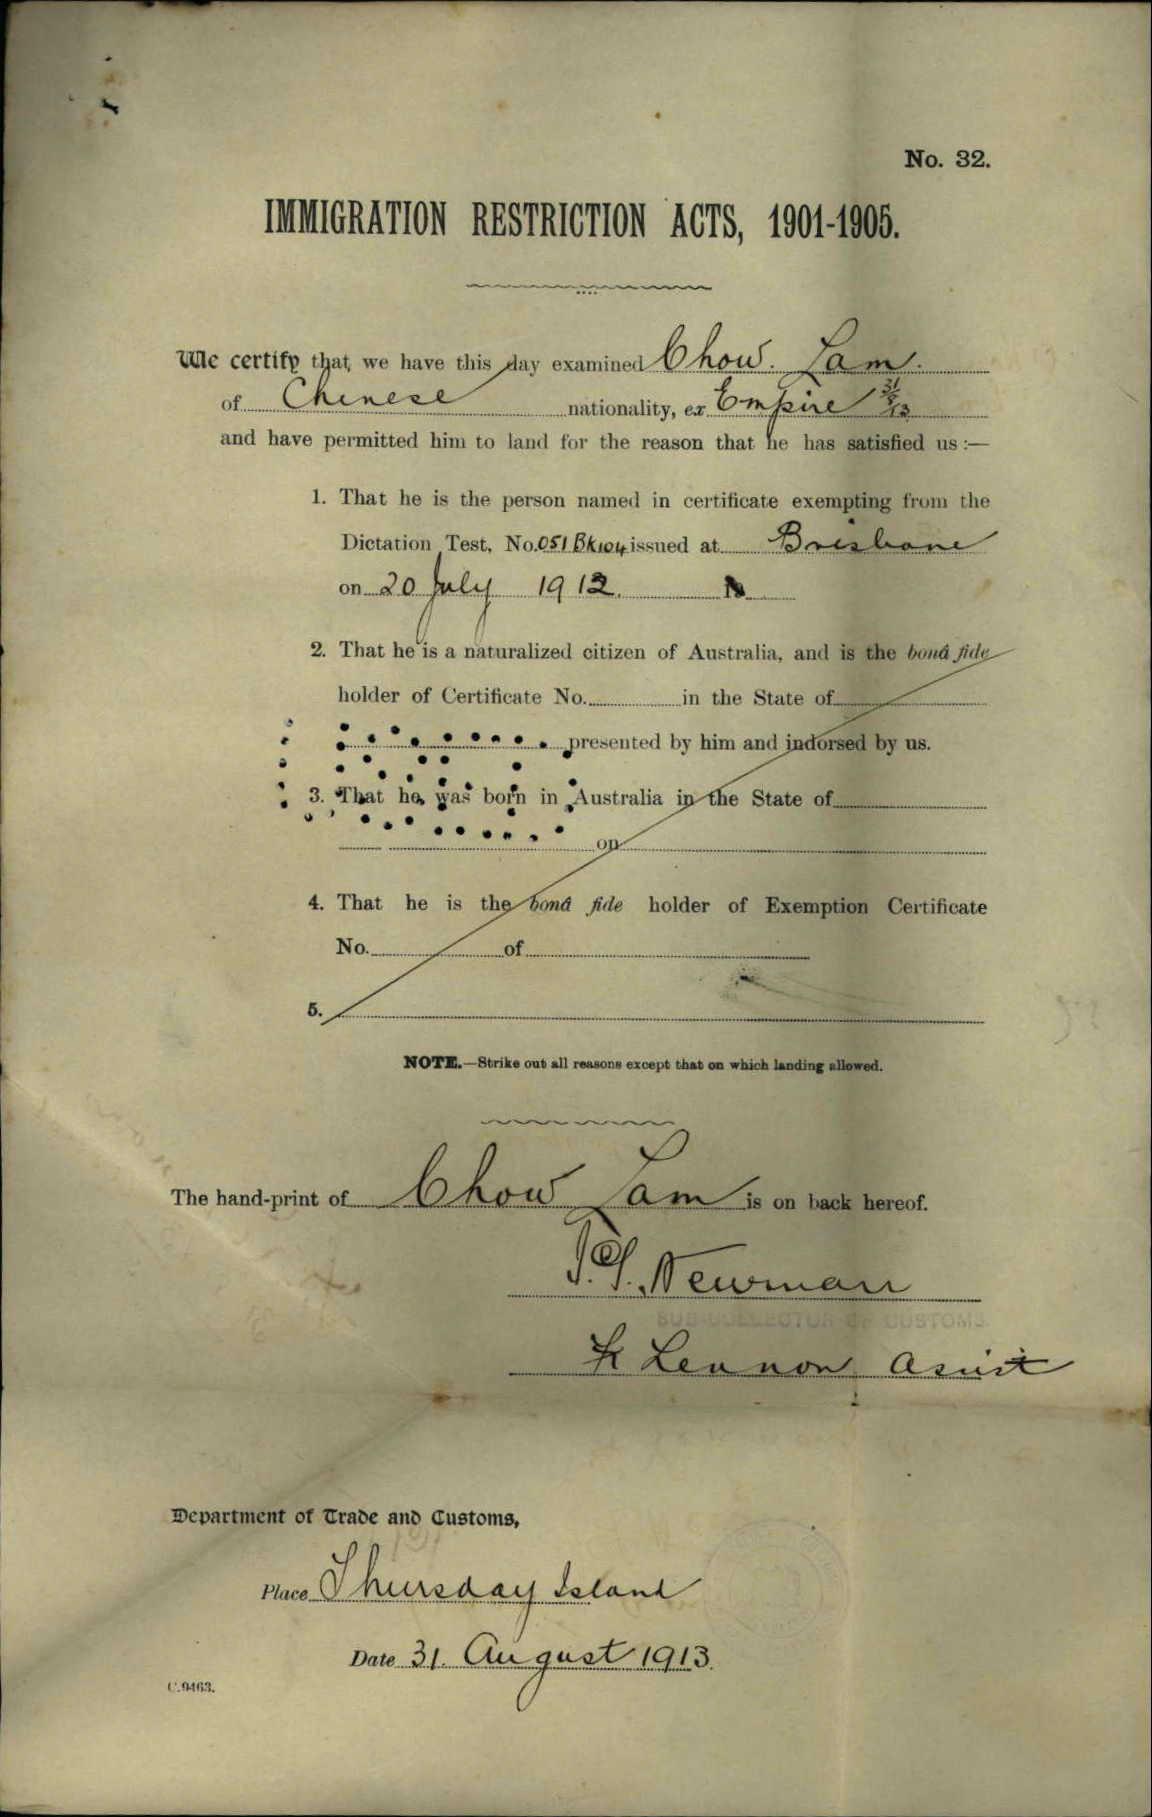 No. 32.
IMMIGRATION RESTRICTION ACTS, 1901-1905.
We certify that we have this day examined Chow. Lam.
of Chinese nationality, ex Empire 31/8/13
and have permitted him to land for the reason that he has satisfied us :—
1. That he is the person named in certificate exempting from the
Dictation Test, No. 051 Bk104 issued at Brisbane
on 20 July 1912.
2. That he is a naturalized citizen of Australia, and is the bonâ fide
holder of Certificate No. in the State of
presented by him and indorsed by us.
3. That he was born in Australia in the State of
on
4. That he is the bonâ fide holder of Exemption Certificate
No. of
5.
NOTE.—Strike out all reasons except that on which landing allowed.
The hand-print of Chow Lam is on back hereof.
Newman
SUB-COLLECTOR OF CUSTOMS
Lennon Assist
Department of Trade and Customs,
Place Thursday Island
Date 31. August 1913.
C.9463.